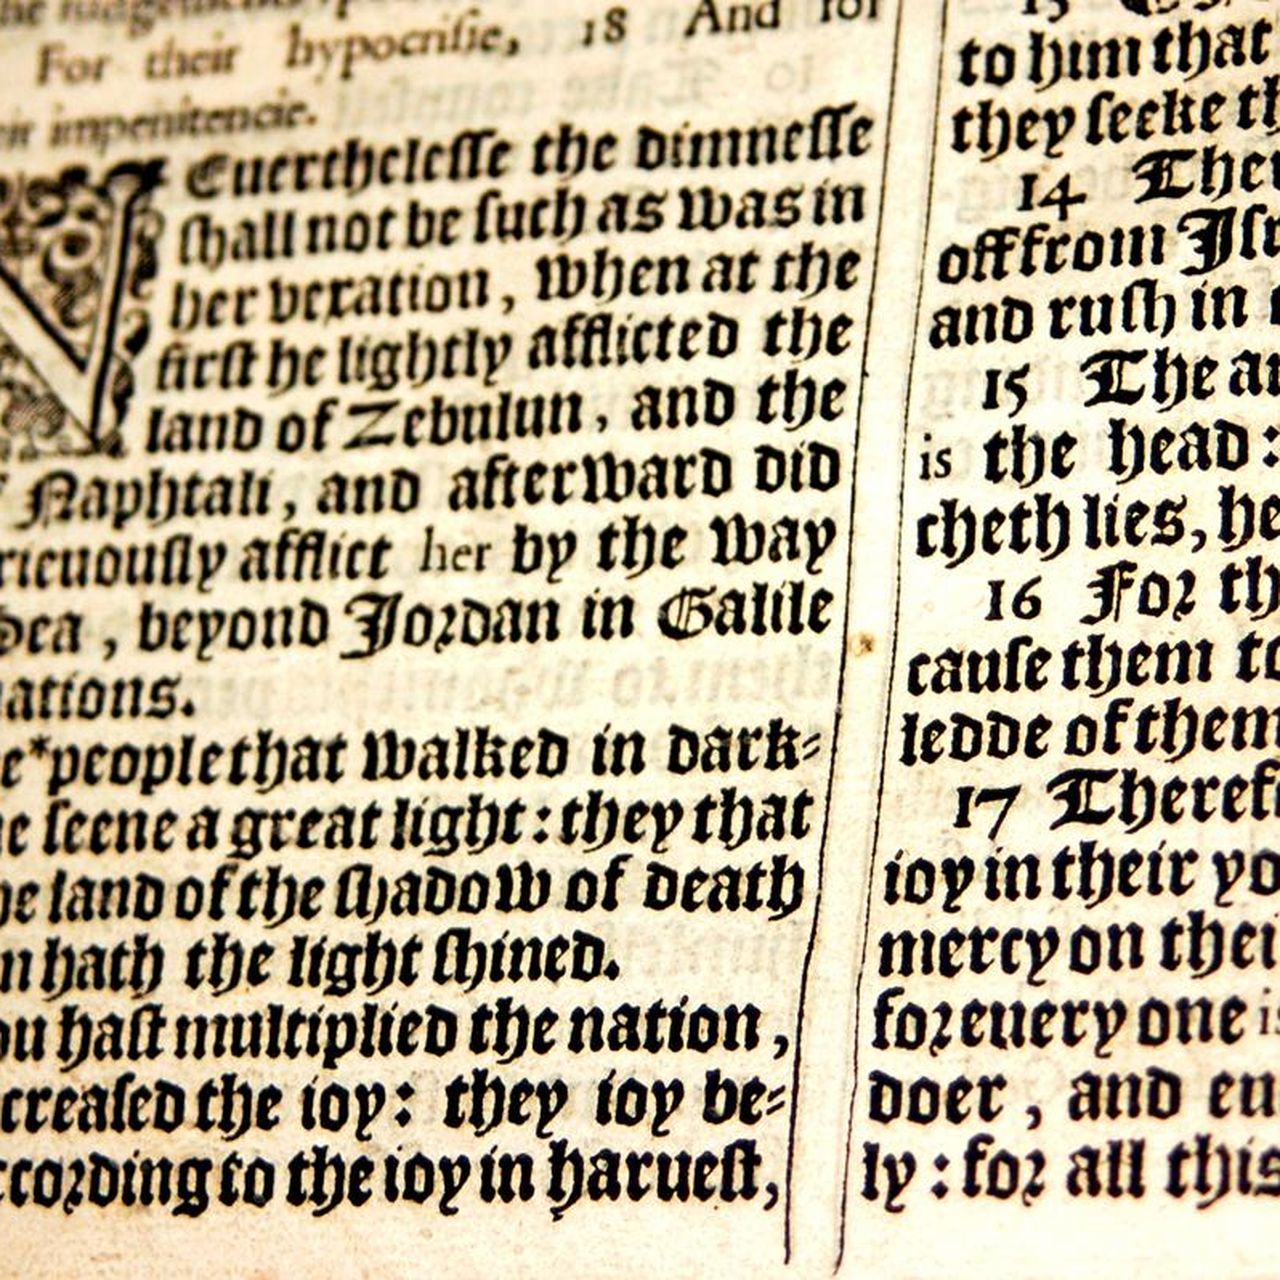 For their hypocrisie, 18 And for
impenitencie.
NEuerthelesse the dimnesse
shall not be such as was in
her vexation, when at the
first he lightly afflicted the
land of Zebulun, and the
Naphtali, and afterward did
rieuously afflict her by the way
Sea, beyond Jordan in Galile
nations.
*people that walked in dark-
seene a great light: they that
land of the shadow of death
hath the light shined.
hast multiplied the nation,
creased the ioy: they ioy be-
ccording to the ioy in haruest,
to him that
they seeke th
14 Ther
off from Isr
and rush in
15 The an
is the head:
cheth lies, he
16 For th
cause them to
ledde of them
17 Theref
ioy in their yo
mercy on thei
for euery one is
doer, and eu
ly: for all this